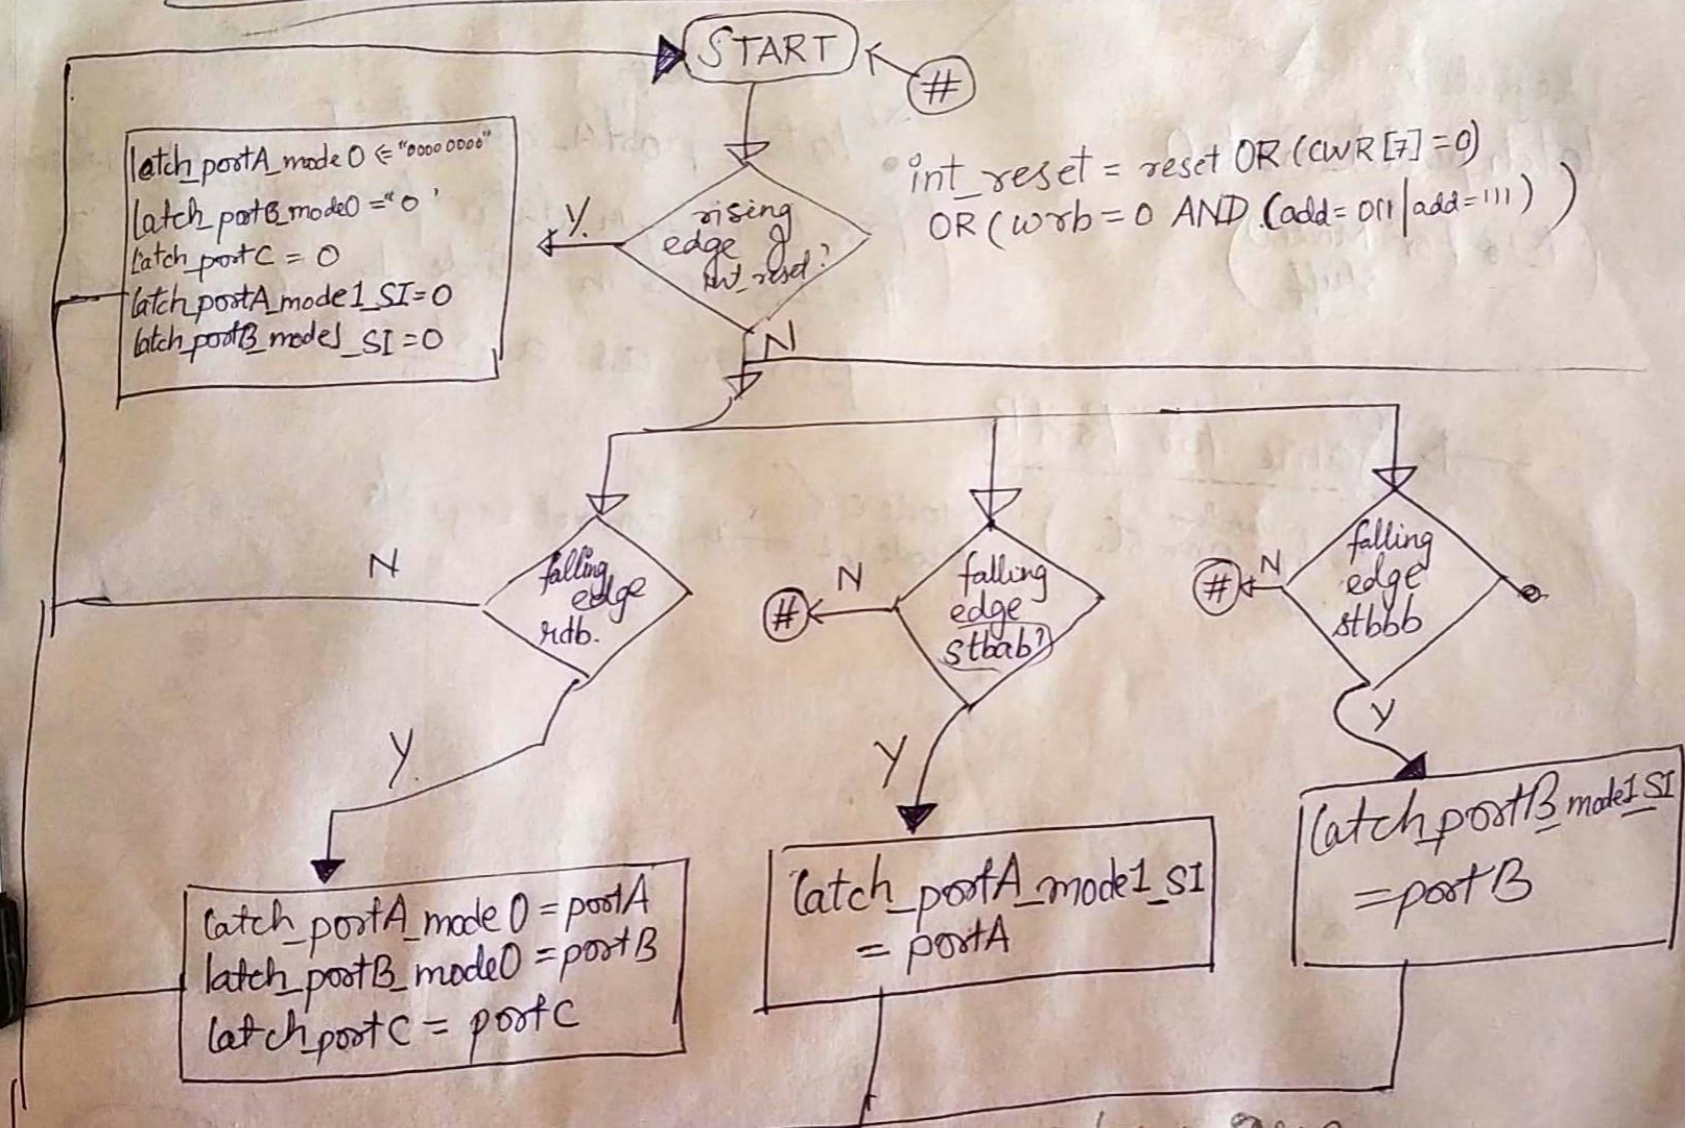 START
#
latch_portA_mode0 <= "0000 0000"
latch_portB_mode0 = "0'
latch_portC = 0
latch_portA_mode1_SI=0
latch_portB_mode1_SI=0
Y.
rising
edge
int_reset?
int_reset = reset OR (CWR[7]=0)
OR (wrb=0 AND (add=011|add=111))
N
N
falling
edge
rdb.
# N
falling
edge
stbab?
# N
falling
edge
stbbb
Y.
Y
Y
latch_portA_mode0 = portA
latch_portB_mode0 = portB
latch_portC = portC
latch_portA_mode1_SI
= portA
latch_portB_mode1_SI
= portB